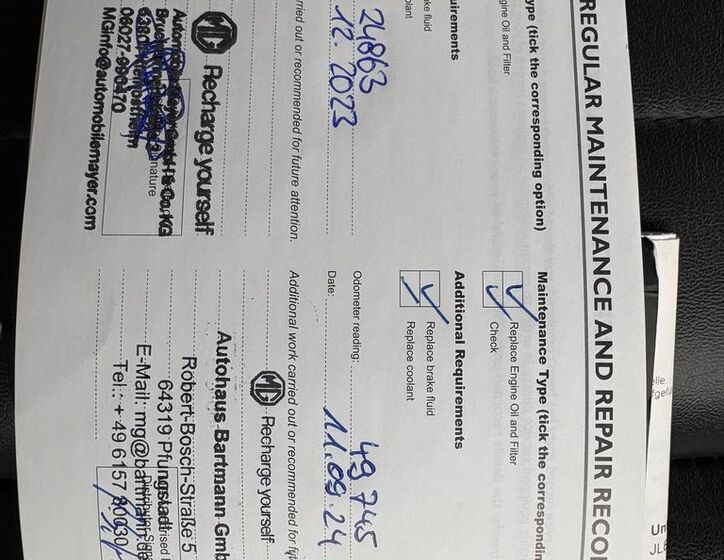 REGULAR MAINTENANCE AND REPAIR RECO
ype (tick the corresponding option)
Engine Oil and Filter
uirements
ake fluid
oolant
24863
12. 2023
rried out or recommended for future attention.
MG Recharge yourself
nature
06027-990470
MGinfo@automobilemayer.com
Maintenance Type (tick the correspondin
Replace Engine Oil and Filter
Check
Additional Requirements
Replace brake fluid
Replace coolant
Odometer reading:
49.745
Date:
11.09.24
Additional work carried out or recommended for fu
MG Recharge yourself
Autohaus Bartmann Gmb
Robert-Bosch-Straße 5
64319 Pfungstadt
E-Mail: mg@bartmann
Tel.: + 49 6157 80030
elle
Un